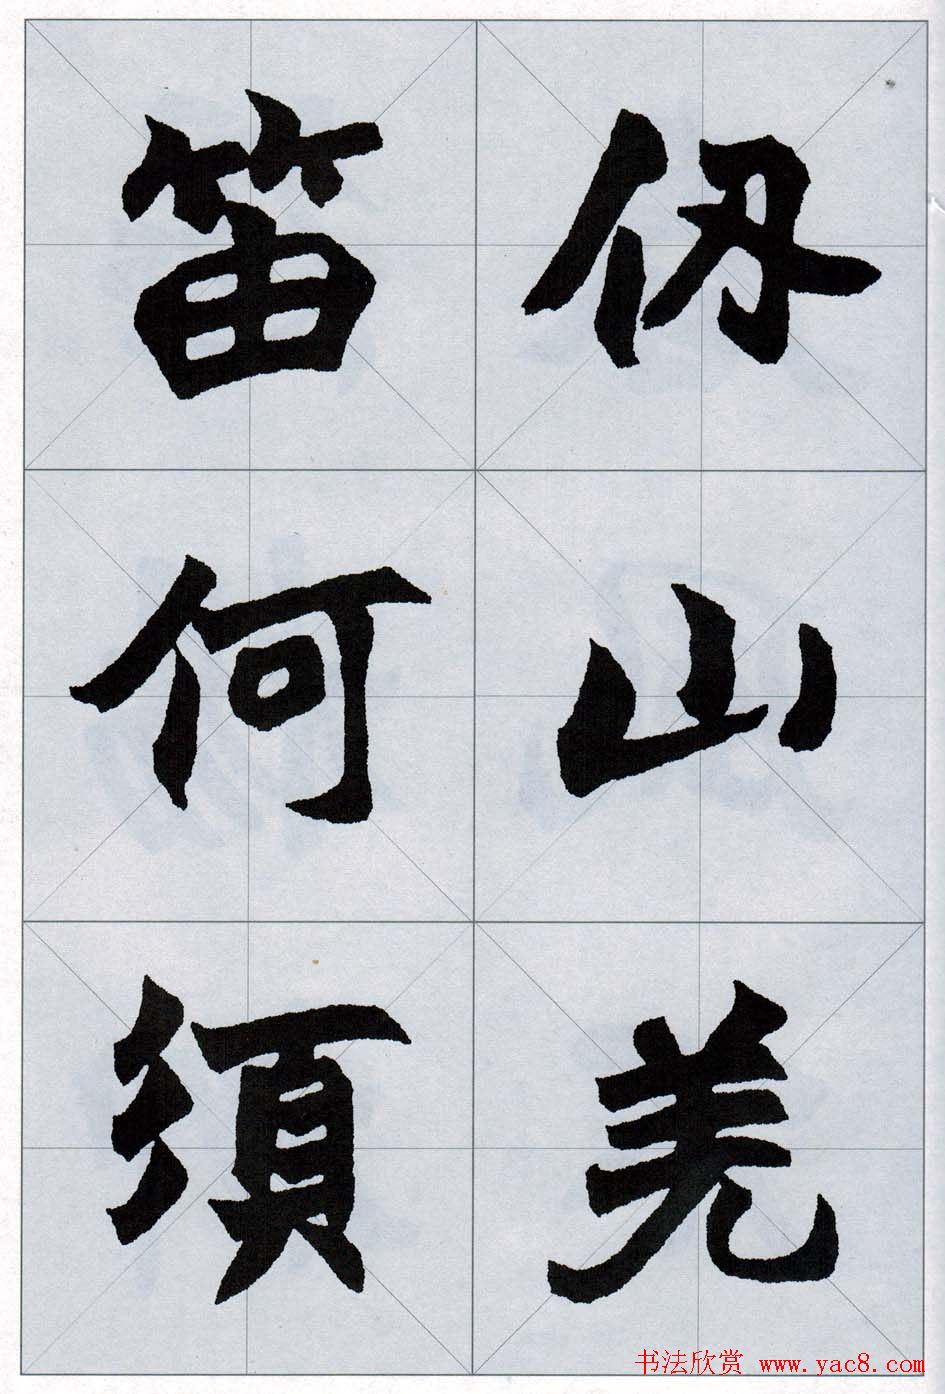 仞山羌
笛何须
书法欣赏 www.yac8.com